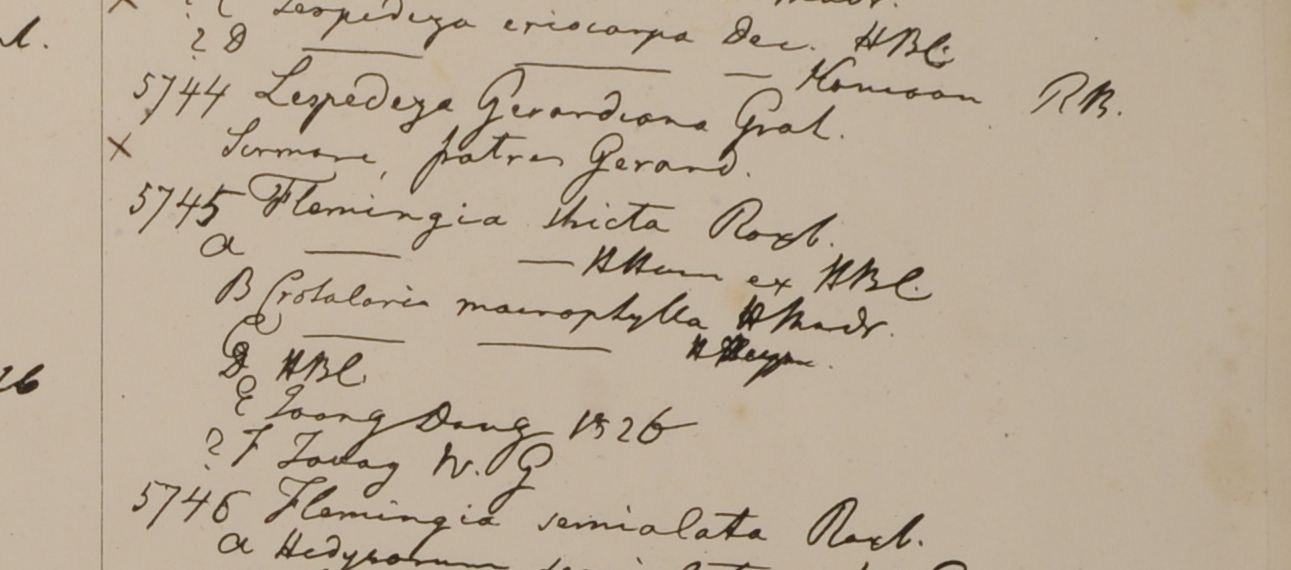 Lespedeza eriocarpa Dec. HBC.
? D — — — Kamaon RB.
5744 Lespedeza Gerardiana Grah.
× Sirmore, patres Gerard.
5745 Flemingia stricta Roxb.
a — — HHam ex HBC.
B Crotalaria macrophylla HMadr.
C — — H Heyne.
D HBC
E Toong Dong 1826
? F Tavoy W. G
5746 Flemingia semialata Roxb.
a Hedysarum